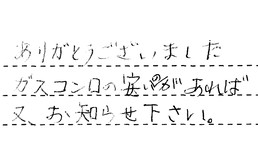 ありがとうございました
ガスコンロの安いのがあれば
又、お知らせ下さい。